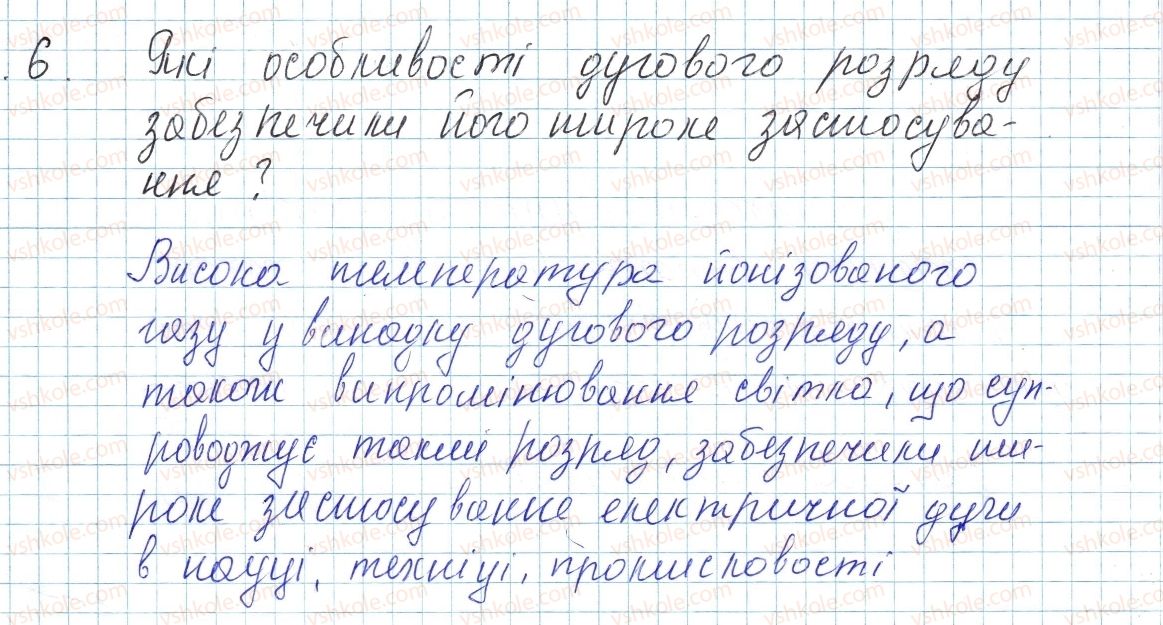 6. Які особливості дугового розряду
забезпечили його широке застосува-
ння?
Висока температура йонізованого
газу у випадку дугового розряду, а
також випромінювання світла, що суп-
роводжує такий розряд, забезпечили ши-
роке застосування електричної дуги
в науці, техніці, промисловості